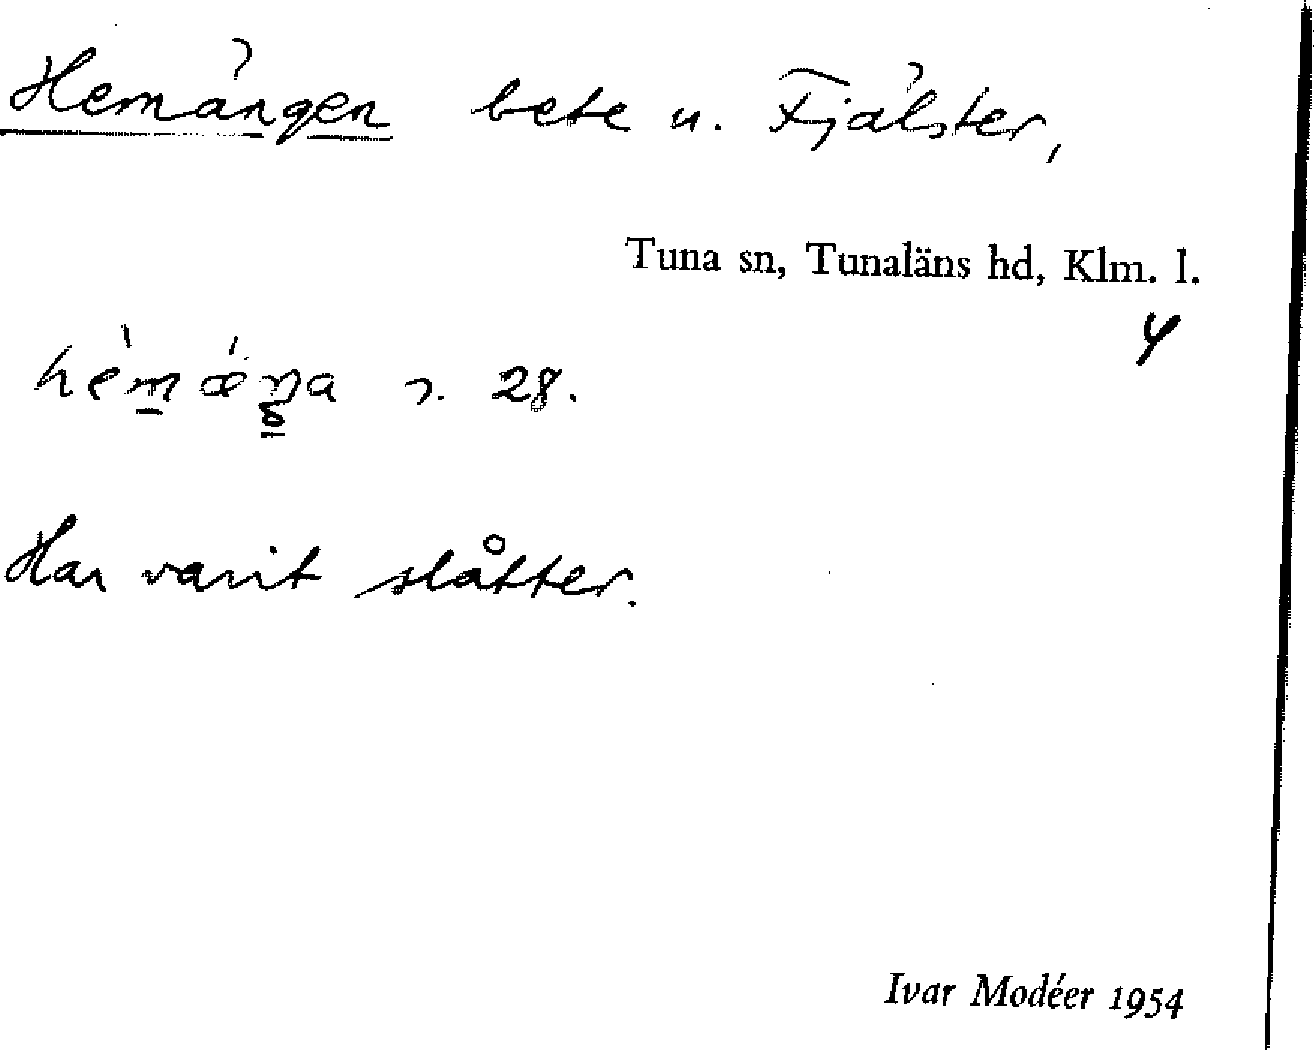 Hemängen bete u. Fjälster,
Tuna sn, Tunaläns hd, Klm. l.
4
s. 28.
Har varit slåtter.
Ivar Modéer 1954